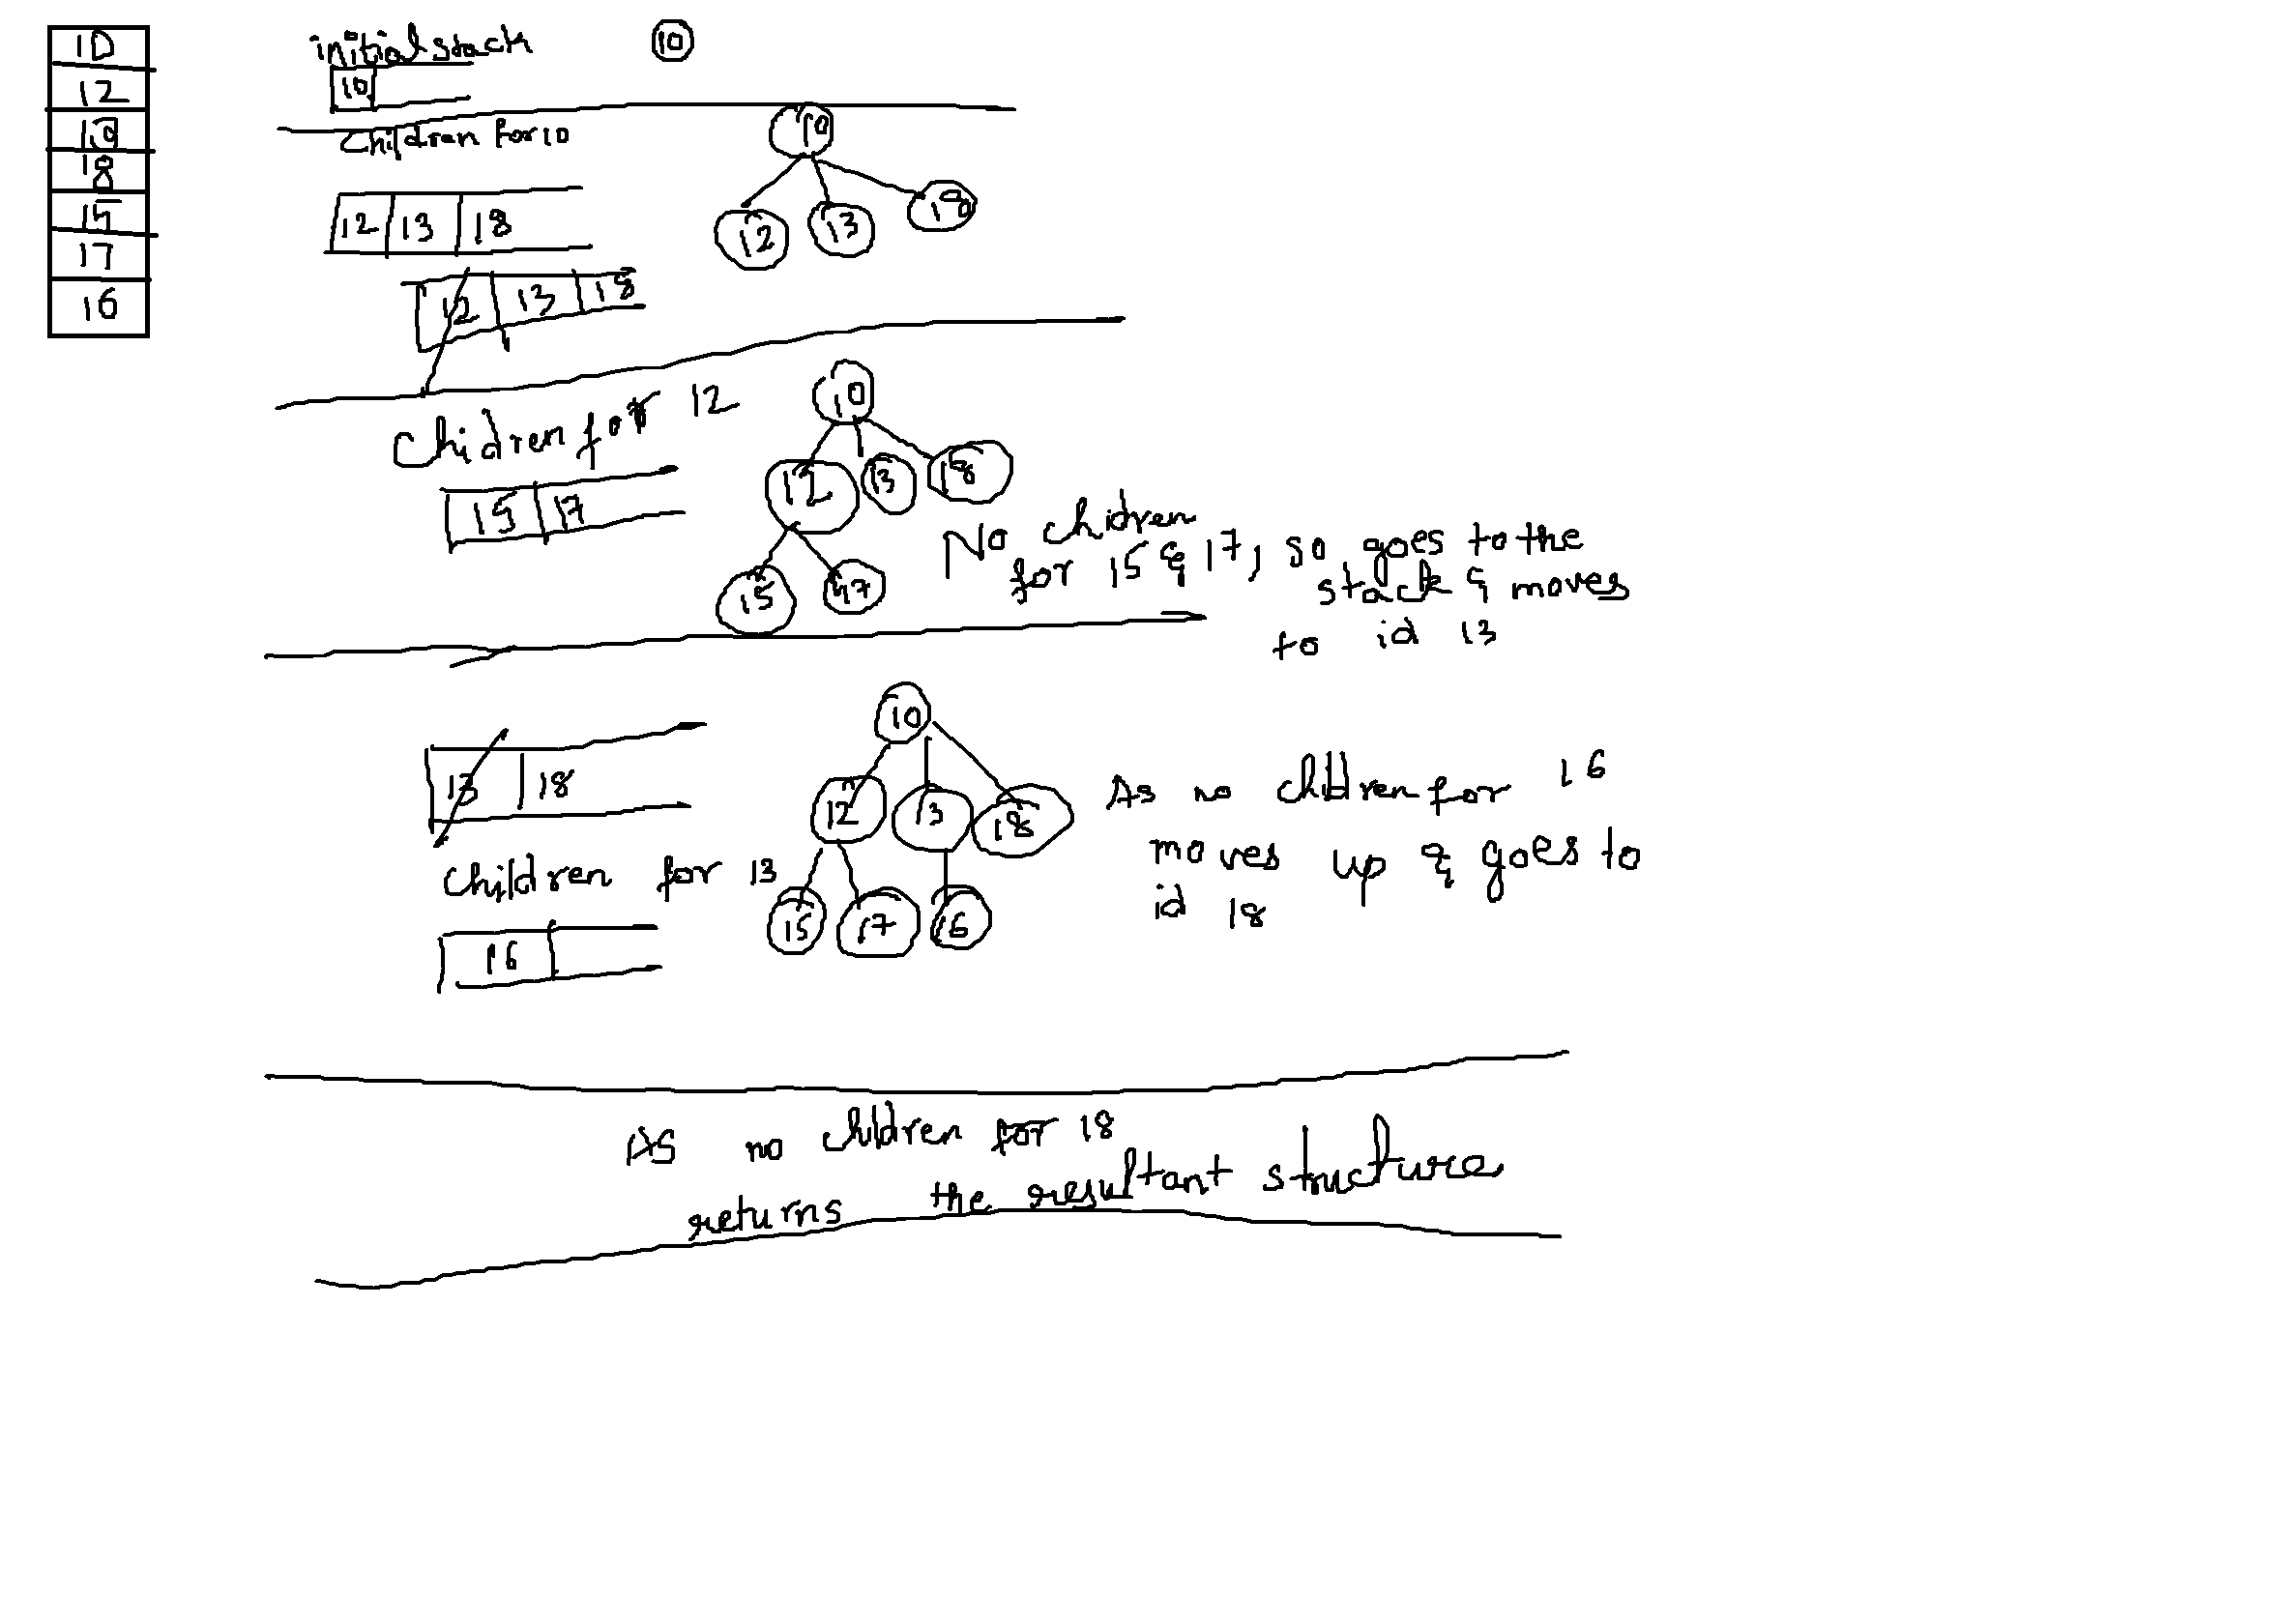 10
12
18
15
17
16
initial stack
10
10
Children for 10
10
12 13 18
12 13 18
12 13 18
Chidren for 12
10
12 13 18
15 17
15 17
No chidren
for 15 & 17, so goes to the
stack & moves
to id 13
13 18
10
12 13 18
Children for 13
15 17 16
16
As no children for 16
moves up & goes to
id 18
As no children for 18
returns the resultant structure